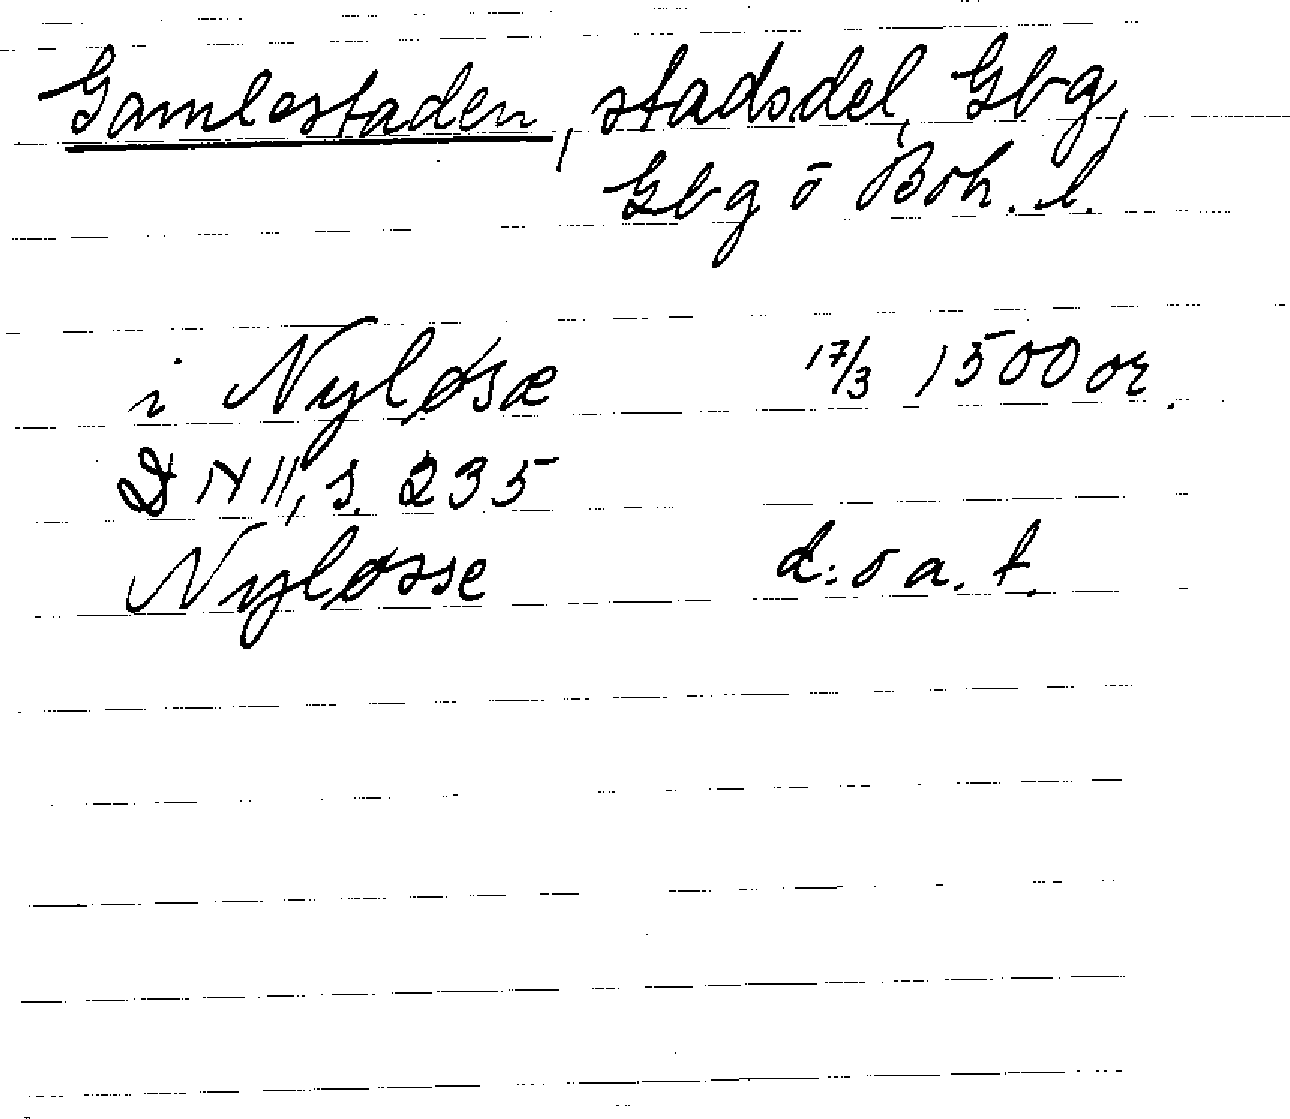 Gamlestaden, stadsdel, Gbg,
Gbg o Boh. l.
i Nyløsæ 17/3 1500 or.
DN II, s. 235
Nyløsse d:o a. t.